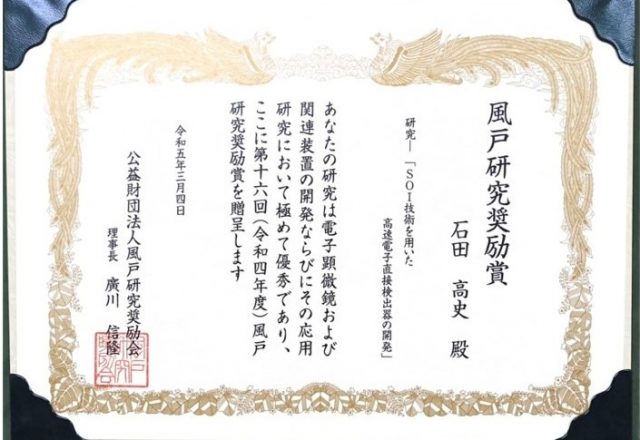 風戸研究奨励賞
石田 高史 殿
研究―「SOI技術を用いた
高速電子直接検出器の開発」
あなたの研究は電子顕微鏡および
関連装置の開発ならびにその応用
研究において極めて優秀であり、
ここに第十六回(令和四年度)風戸
研究奨励賞を贈呈します
令和五年三月四日
公益財団法人風戸研究奨励会
理事長 廣川 信隆